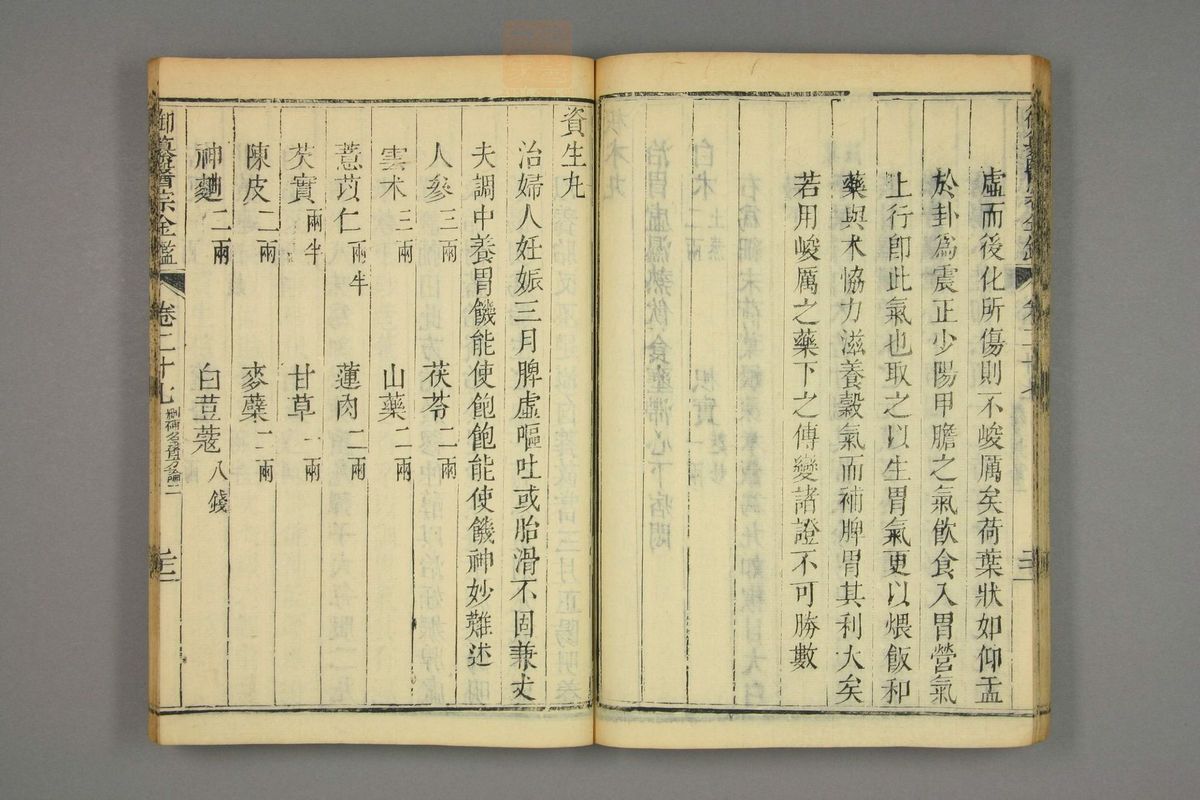 虛而後化所傷則不峻厲矣荷葉狀如仰盂
於卦為震正少陽甲膽之氣飲食入胃營氣
上行卽此氣也取之以生胃氣更以煨飯和
藥與术恊力滋養穀氣而補脾胃其利大矣
若用峻厲之藥下之傳變諸證不可勝數
資生丸
治婦人妊娠三月脾虛嘔吐或胎滑不固兼丈
夫調中養胃饑能使飽飽能使饑神妙難述
人參三兩 茯苓二兩
雲术三兩 山藥二兩
薏苡仁兩半 蓮肉二兩
芡實兩半 甘草一兩
陳皮二兩 麥蘖二兩
神麯二兩 白荳蔻八錢
御纂醫宗金鑑 卷二十九 刪補名醫方論二